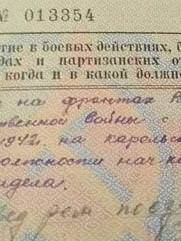 № 013354
тие в боевых действиях, б
дах и партизанских от
когда и в какой должно
на фронтах
ственной войны с
1942 на карельск
должности нач